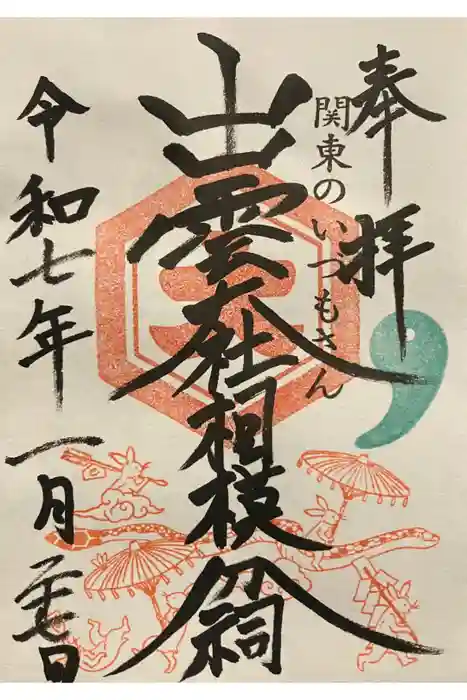 奉拝
関東のいづもさん
出雲大社相模分祠
令和七年一月二十七日